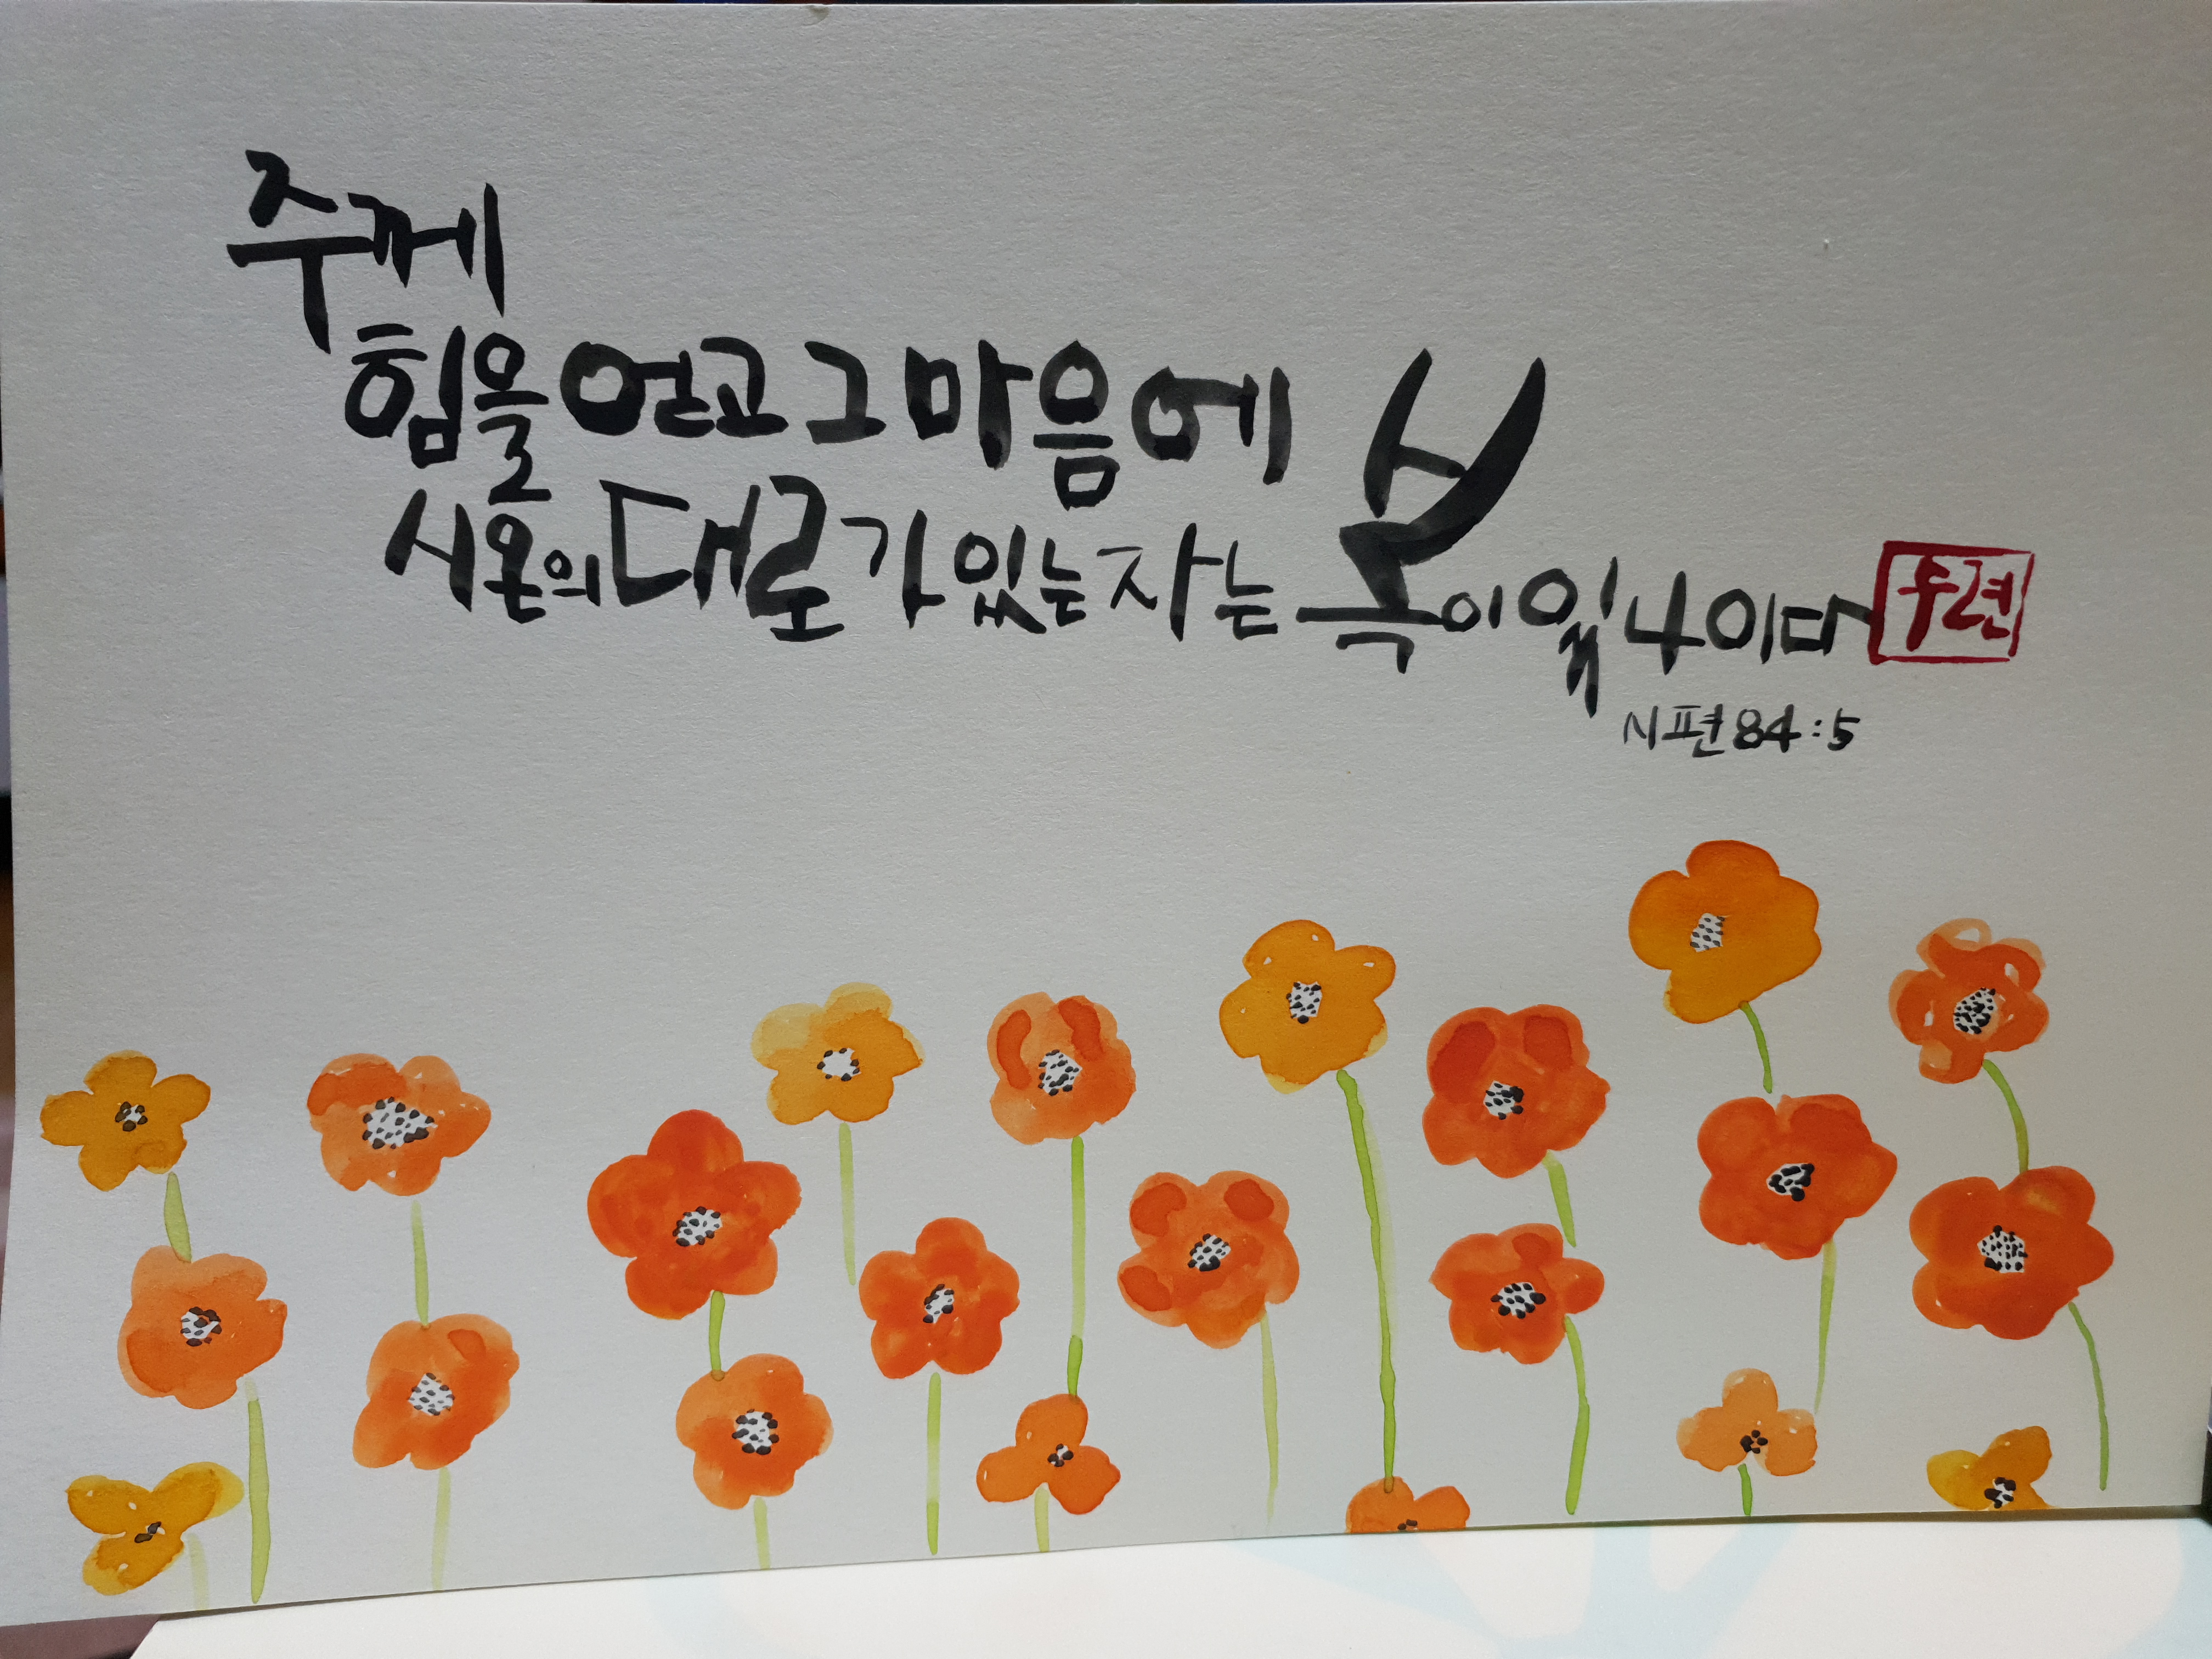 주께
힘을 얻고 그 마음에
시온의 대로가 있는 자는 복이 있나이다
시편 84:5